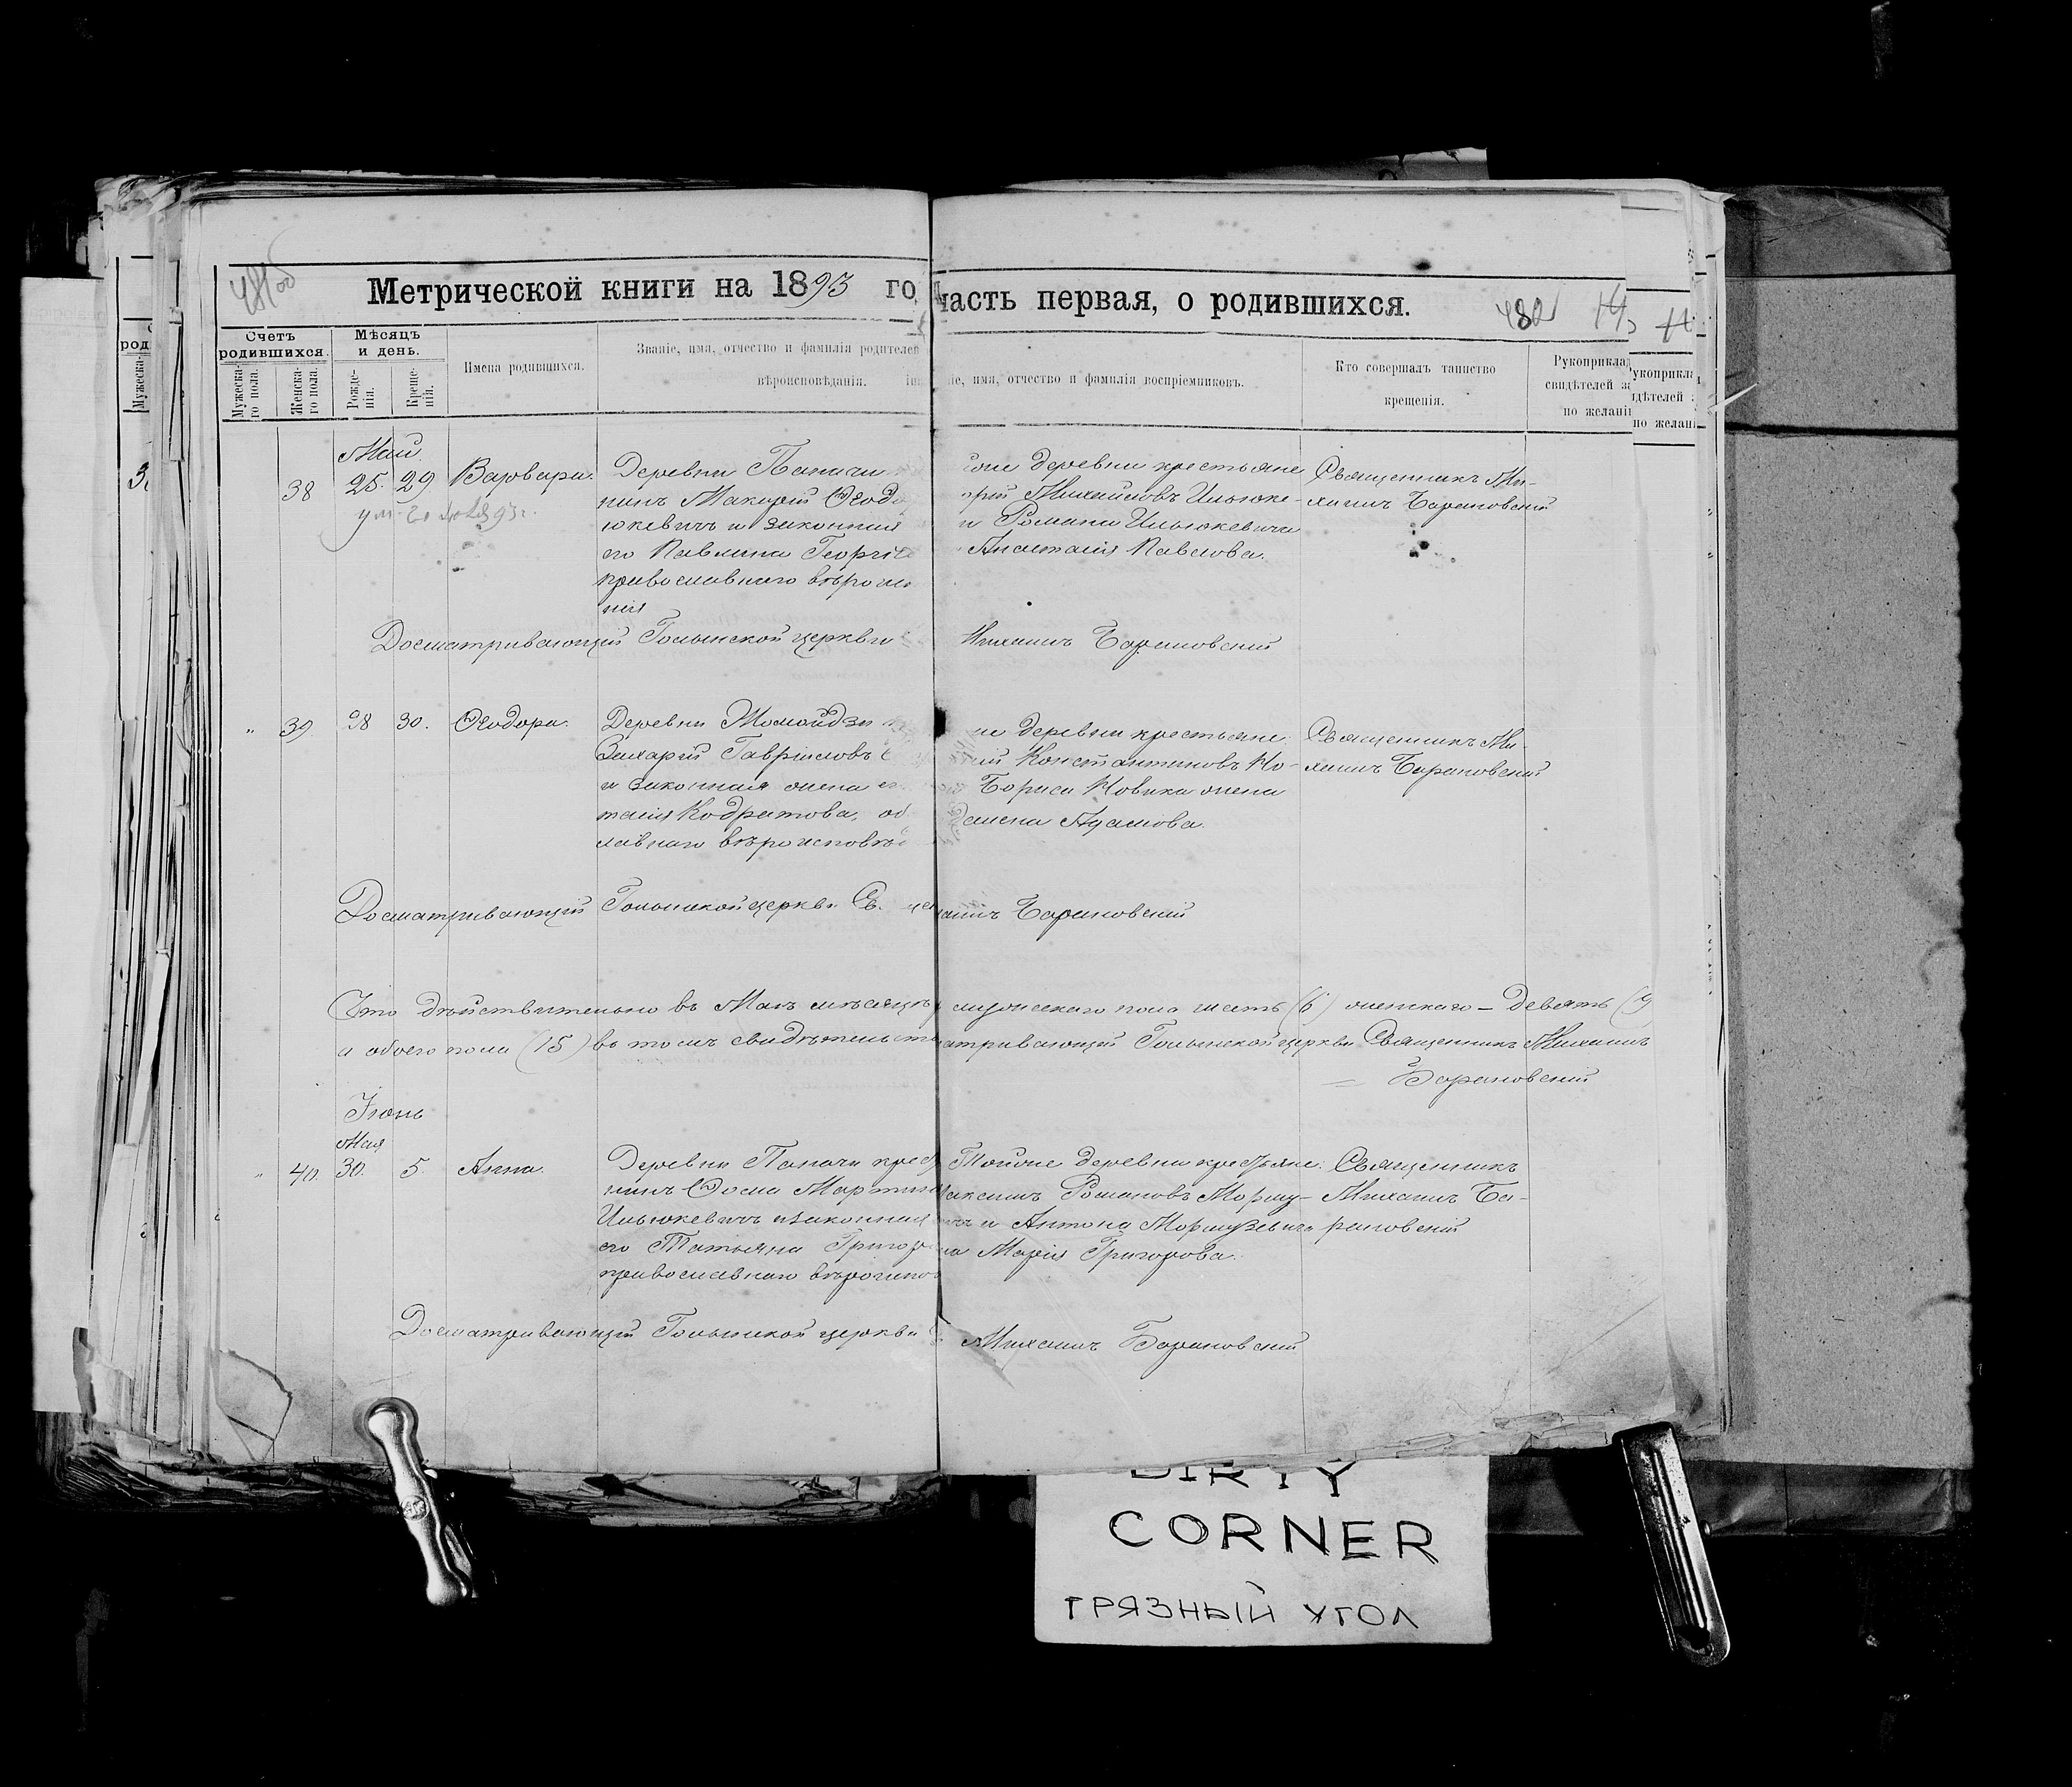 Метрической книги на 1893 го
часть первая, о родившихся.
Счетъ родившихся.
Мѣсяцъ и день.
Мужеска-го пола.
Женска-го пола.
Рожде-нія.
Креще-нія.
Имена родившихся.
Званіе, имя, отчество и фамилія родителей
вѣроисповѣданія.
имя, отчество и фамилія воспріемниковъ.
Кто совершалъ таинство
крещенія.
Рукоприклад
свидѣтелей
по желані
Май
38 25. 29 Варвара.
Деревни Паначи
нинъ Макарій Ѳеодо
юкевичъ и законная
его Павлина Георгіе
православнаго вѣроис
нія
деревни крестьяне
Михайловъ Ильюке-
и Романа Ильюкевича
Анастасія Павлова.
Священникъ Ми-
хаилъ Барановскій
Досматривающій Голынской церкви
Михаилъ Барановскій
" 39 28 30. Ѳеодора.
Деревни
Захарій Гавріиловъ
и законная жена е
тасія Кодратова, об
славнаго вѣроисповѣ
деревни крестьяне
Константиновъ Но-
Бориса Новика жена
Адамова.
Священникъ Ми-
хаилъ Барановскій
Досматривающій Голынской церкви Св.
Барановскій
Что дѣйствительно въ Маѣ мѣсяцѣ
мужескаго пола шесть (6) женскаго – девять (9
а обоего пола (15) въ томъ свидѣтельст
Голынской церкви Священникъ Михаилъ
Барановскій
Іюнь
Мая
" 40. 30. 5. Анна.
Деревни Паначи крест
нинъ Ѳома Мартин
Ильюкевичъ и законная
его Татьяна Григор
православнаго вѣроиспов
Тойже деревни крестьяне:
Максимъ Романовъ Морму-
и Антона Мормузевича
Марія Григорова.
Священникъ
Михаилъ Ба-
рановскій
Досматривающій Голынской церкви
Михаилъ Барановскій
DIRTY
CORNER
ГРЯЗНЫЙ УГОЛ